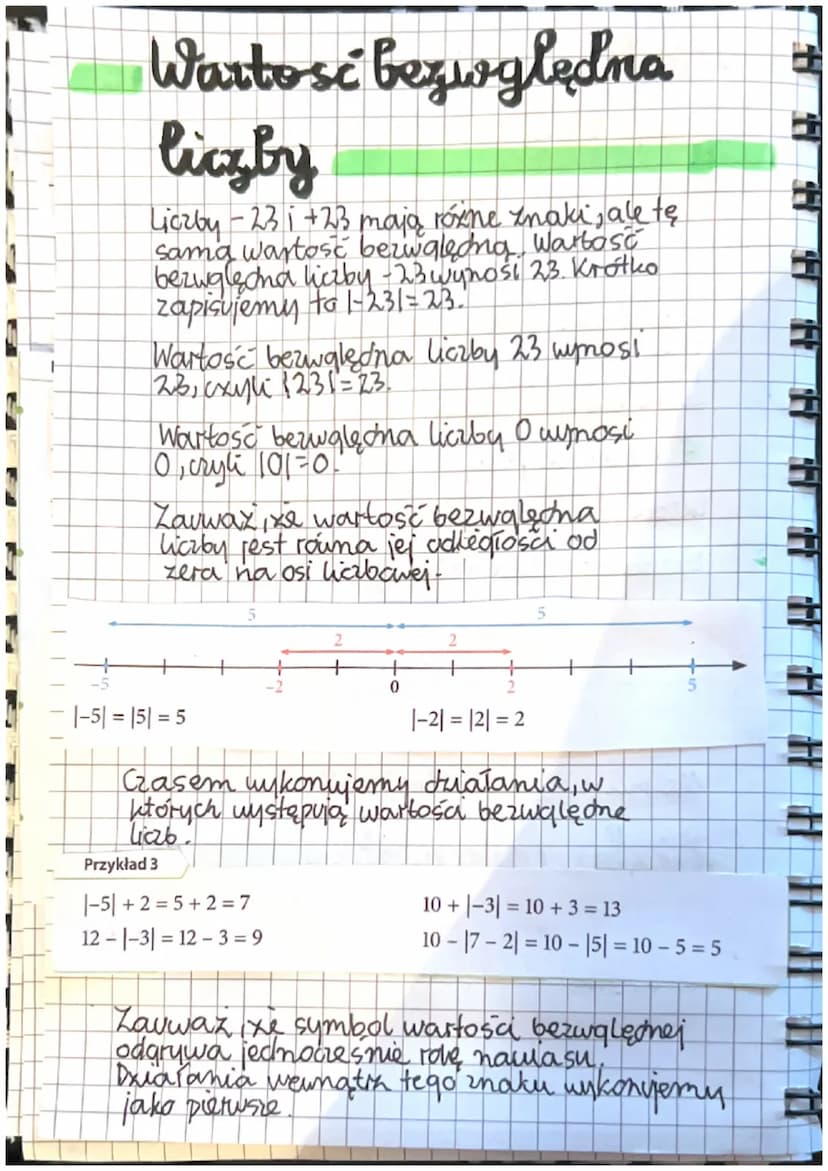 Wartość bezwględna
liczby
Liczby -23 i +23 mają różne znaki, ale tę
samą wartość bezwględną. Wartość
bezwględna liczby -23 wynosi 23. Krótko
zapisujemy to |-23|=23.
Wartość bezwględna liczby 23 wynosi
23, czyli |23|=23.
Wartość bezwględna liczby 0 wynosi
0, czyli |0|=0.
Zauważ, że wartość bezwględna
liczby jest równa jej odległości od
zera na osi liczbowej.
5 5
2 2
-5 -2 0 2 5
|−5| = |5| = 5 |−2| = |2| = 2
Czasem wykonujemy działania, w
których występują wartości bezwględne
liczb.
Przykład 3
|−5| + 2 = 5 + 2 = 7 10 + |−3| = 10 + 3 = 13
12 − |−3| = 12 − 3 = 9 10 − |7 − 2| = 10 − |5| = 10 − 5 = 5
Zauważ, że symbol wartości bezwględnej
odgrywa jednocześnie rolę nawiasu.
Działania wewnątrz tego znaku wykonujemy
jako pierwsze.